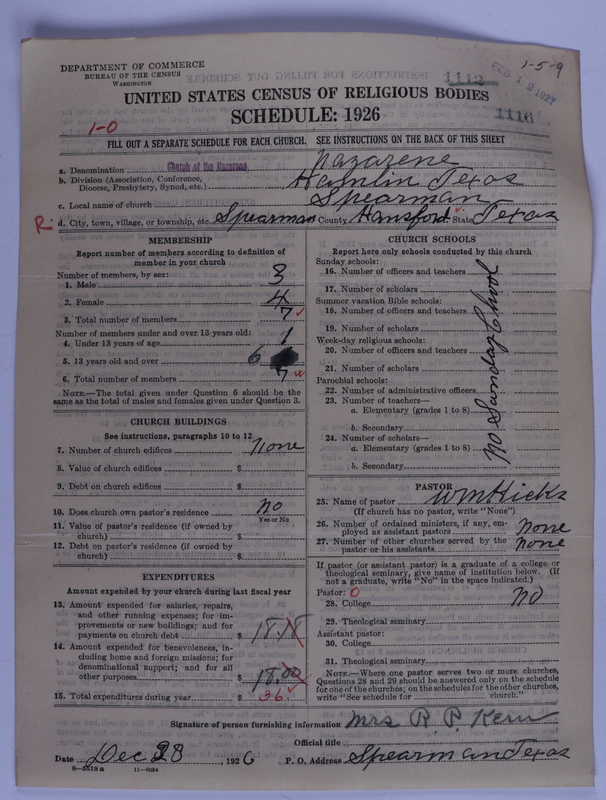 DEPARTMENT OF COMMERCE
BUREAU OF THE CENSUS
WASHINGTON
1-5-9
1112
FEB 12 1927
UNITED STATES CENSUS OF RELIGIOUS BODIES
SCHEDULE: 1926
1116
1-0
FILL OUT A SEPARATE SCHEDULE FOR EACH CHURCH. SEE INSTRUCTIONS ON THE BACK OF THIS SHEET
a. Denomination Church of the Nazarene Nazarene
b. Division (Association, Conference, Diocese, Presbytery, Synod, etc.) Hamlin Texas
c. Local name of church Spearman
R d. City, town, village, or township, etc. Spearman County Hansford State Texas
MEMBERSHIP
Report number of members according to definition of
member in your church
Number of members, by sex:
1. Male 3
2. Female 4
3. Total number of members 7
Number of members under and over 13 years old:
4. Under 13 years of age 1
5. 13 years old and over 6
6. Total number of members 7
NOTE.—The total given under Question 6 should be
same as the total of males and females given under Question 3.
CHURCH BUILDINGS
See instructions, paragraphs 10 to 12
7. Number of church edifices none
8. Value of church edifices $
9. Debt on church edifices $
10. Does church own pastor's residence no
Yes or No
11. Value of pastor's residence (if owned by
church) $
12. Debt on pastor's residence (if owned by
church) $
EXPENDITURES
Amount expended by church during last fiscal year
13. Amount expended for salaries, repairs,
and other running expenses; for im-
provements or new buildings; and for
payments on church debt $ 18.18
14. Amount expended for benevolences, in-
cluding home and foreign missions; for
denominational support; and for all
other purposes $ 18.00
15. Total expenditures during year $ 36
CHURCH SCHOOLS
Report here only schools conducted by this church
Sunday schools:
16. Number of officers and teachers
17. Number of scholars
Summer vacation Bible schools:
18. Number of officers and teachers
19. Number of scholars
Week-day religious schools:
20. Number of officers and teachers
21. Number of scholars
Parochial schools:
22. Number of administrative officers
23. Number of teachers—
a. Elementary (grades 1 to 8)
b. Secondary
24. Number of scholars—
a. Elementary (grades 1 to 8)
b. Secondary
No Sunday School
PASTOR
25. Name of pastor Wm Hicks
(If church has no pastor, write "None")
26. Number of ordained ministers, if any, em-
ployed as assistant pastors none
27. Number of other churches served by the
pastor or his assistants none
If pastor (or assistant pastor) is a graduate of a college or
theological seminary, give name of institution below. (If
not a graduate, write "No" in the space indicated.)
Pastor: 0
28. College no
29. Theological seminary
Assistant pastor:
30. College
31. Theological seminary
NOTE.—Where one pastor serves two or more churches,
Questions 28 and 29 should be answered only on the schedule
for one of the churches; on the schedules for the other churches,
write "See schedule for church."
Signature of person furnishing information Mrs R. P. Kern
Official title
Date Dec 28 1926 P. O. Address Spearman Texas
8—5518a 11—9034